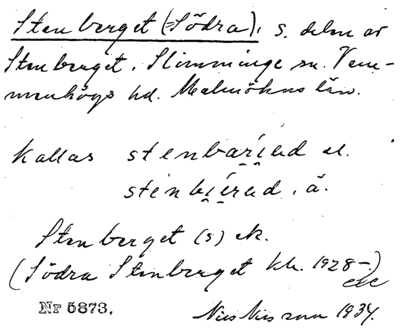 Stenberget (=Södra), s. delen av
Stenberget, Slimminge sn. Vem-
menhögs hd. Malmöhus län.
Kallas stenbaríad el.
stenbíerad, ä.
Stenberget (s) ek.
(Södra Stenberget kk. 1928–)
Nr 5873. Nils Nilsson 1934.